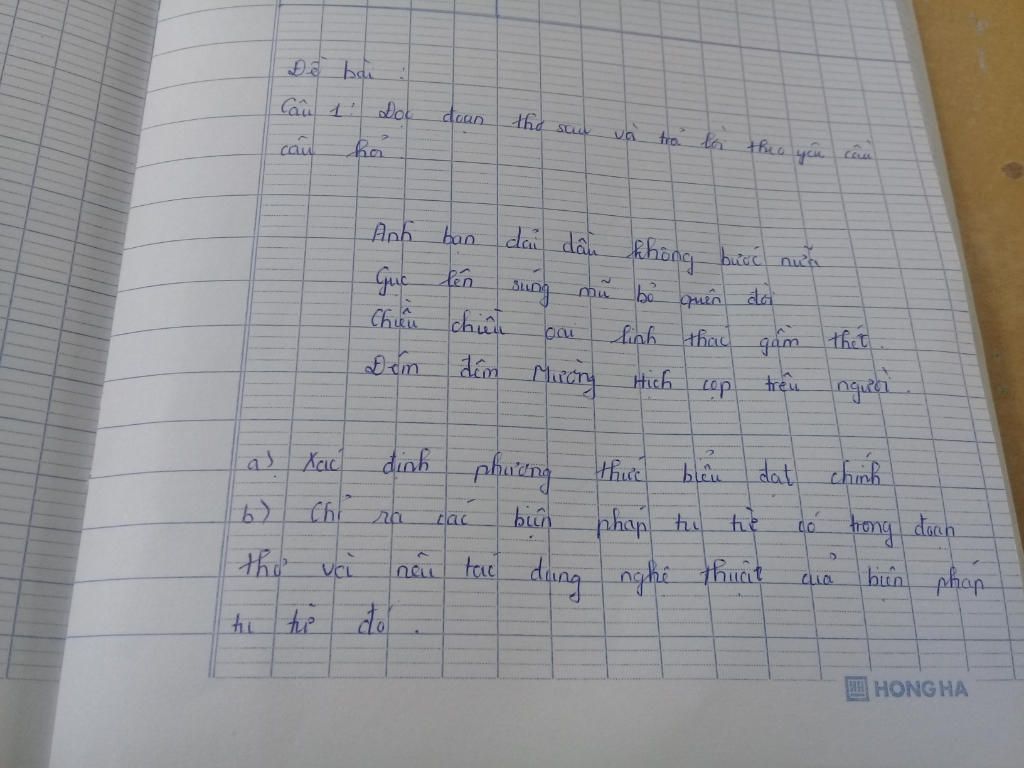 Đề bài :
Câu 1 : Đọc đoạn thơ sau và trả lời theo yêu cầu
câu hỏi
Anh bạn dãi dầu không bước nữa
Gục lên súng mũ bỏ quên đời
Chiều chiều oai linh thác gầm thét.
Đêm đêm Mường Hich cọp trêu người.
a) Xác định phương thức biểu đạt chính
b) Chỉ ra các biện pháp tu từ có trong đoạn
thơ và nêu tác dụng nghệ thuật của biện pháp
tu từ đó.
HONG HA